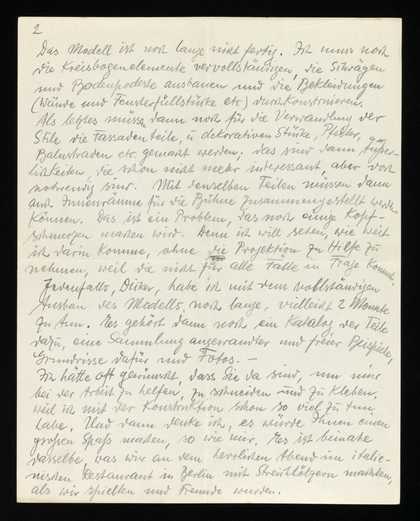 2
Das Modell ist noch lange nicht fertig. Ich muss noch
die Kreisbogenelemente vervollständigen, die Schrägen
und Bodenpodeste ausbauen und die Bekleidungen
(Wände und Fensterfüllstücke etc) durchkonstruieren.
Als letztes müssen dann noch für die Verwandlung der
Stile die Fassadenteile, u. dekorativen Stücke, Pfeiler,
Balustraden etc gemacht werden; das sind dann Äußer-
lichkeiten, die schon nicht mehr interessant, aber doch
notwendig sind. Mit denselben Teilen müssen dann
auch Innenräume für die Bühne zusammengestellt werden
können. Das ist ein Problem, das noch einige Kopf-
schmerzen machen wird. Denn ich will sehen, wie weit
ich darin komme, ohne die Projektion zu Hilfe zu
nehmen, weil die nicht für alle Fälle in Frage kommt.
Jedenfalls, habe ich mit dem vollständigen
Ausbau des Modells noch lange, vielleicht 2 Monate
zu tun. Es gehört dann noch ein Katalog der Teile
dazu, eine Sammlung angewandter und freier Beispiele,
Grundrisse dafür und Fotos. —
Ich hätte oft gewünscht, dass Sie da sind, um mir
bei der Arbeit zu helfen, zu schneiden und zu kleben,
weil ich mit der Konstruktion schon so viel zu tun
habe. Und dann denke ich, es würde Ihnen einen
großen Spaß machen, so wie mir. Es ist beinahe
dasselbe, was wir an dem herrlichen Abend im italie-
nischen Restaurant in Berlin mit Streichhölzern machten,
als wir spielten und Freunde wurden.